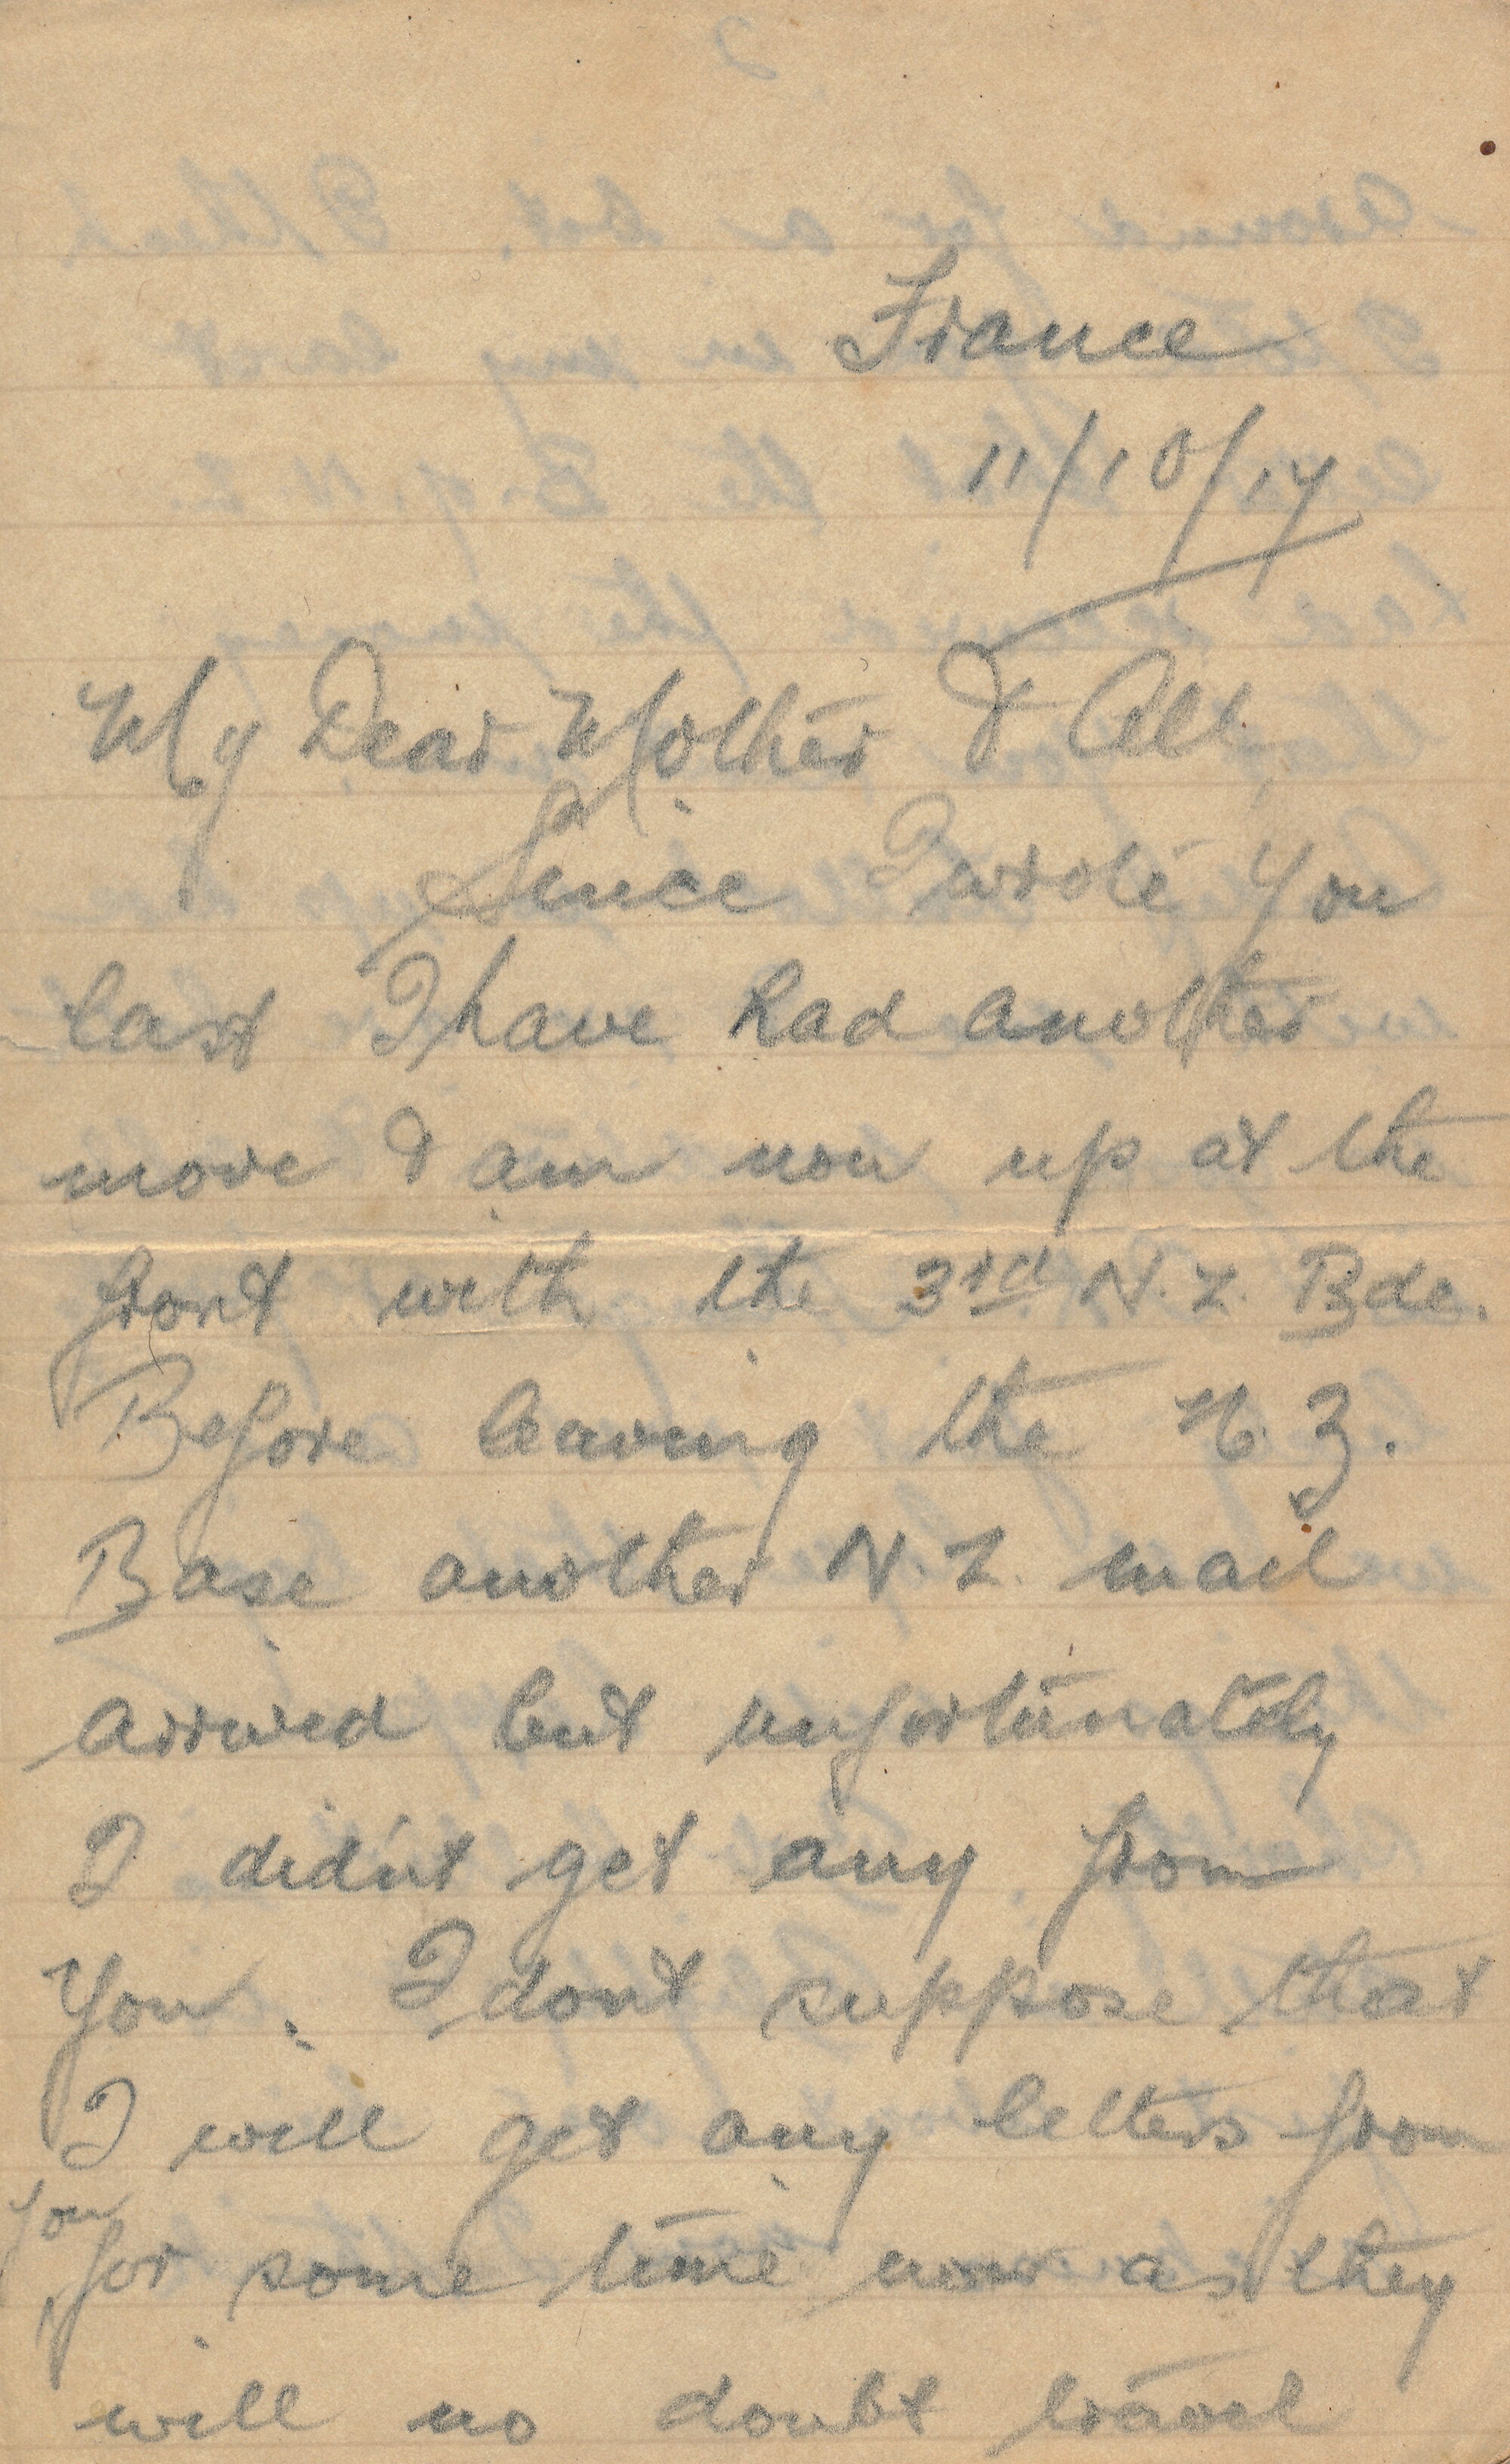 France
11/10/17
My Dear Mother & All,
Since I wrote you
last I have had another
move & am now up at the
front with the 3rd N.Z. Bde.
Before leaving the N.Z.
Base another N.Z. mail
arrived but unfortunately
I didn't get any from
you. I dont suppose that
I will get any letters from
you
for some time now as they
will no doubt travel